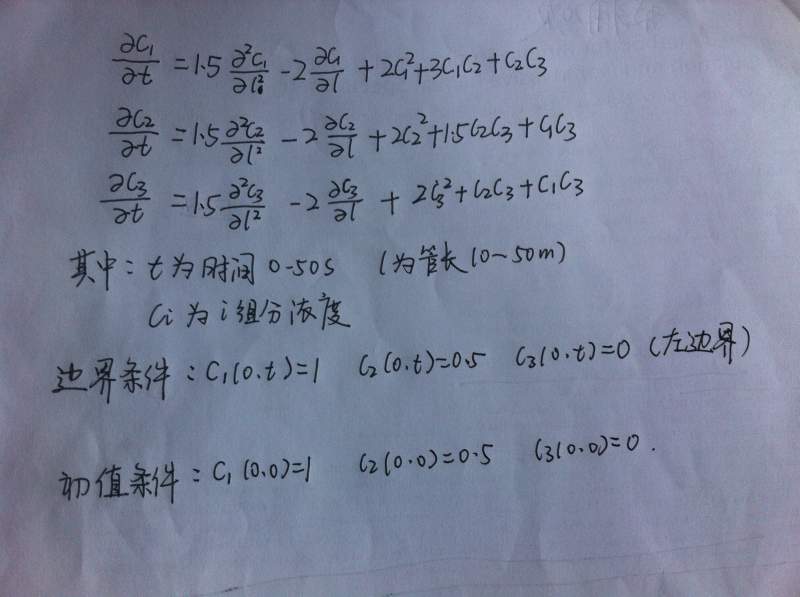 ∂C₁/∂t = 1.5 ∂²C₁/∂l² - 2 ∂C₁/∂l + 2C₁² + 3C₁C₂ + C₂C₃
∂C₂/∂t = 1.5 ∂²C₂/∂l² - 2 ∂C₂/∂l + 2C₂² + 1.5C₂C₃ + C₁C₃
∂C₃/∂t = 1.5 ∂²C₃/∂l² - 2 ∂C₃/∂l + 2C₃² + C₂C₃ + C₁C₃
其中: t为时间 0-50s (为管长(0~50m)
Ci 为 i 组分浓度
边界条件: C₁(0,t)=1 C₂(0,t)=0.5 C₃(0,t)=0 (左边界)
初值条件: C₁(0,0)=1 C₂(0,0)=0.5 C₃(0,0)=0.